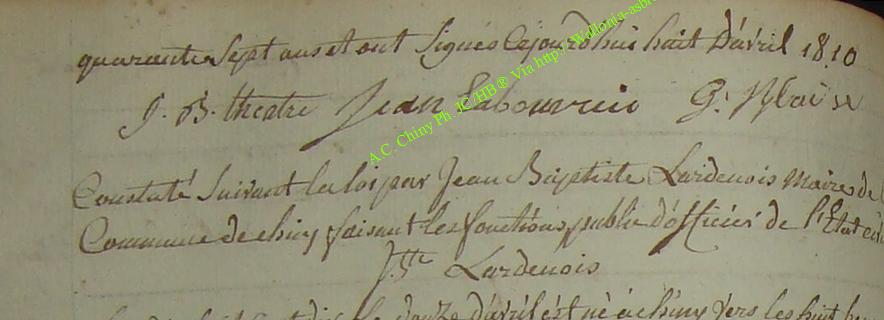 quarante Sept ans et ont Signés Cejourd'hui huit D'avril 1810
J. B. theatre Jean Labouverie G.
Constaté Suivant la loi par Jean Baptiste Lardenois Maires de
Commune de chiny faisant les fonctions public d'officier de l'État
J. Bte Lardenois
douze d'avril est né à chiny vers les huit
A.C. Chiny Ph. JC/HB ® Via http://Wallonia-asb